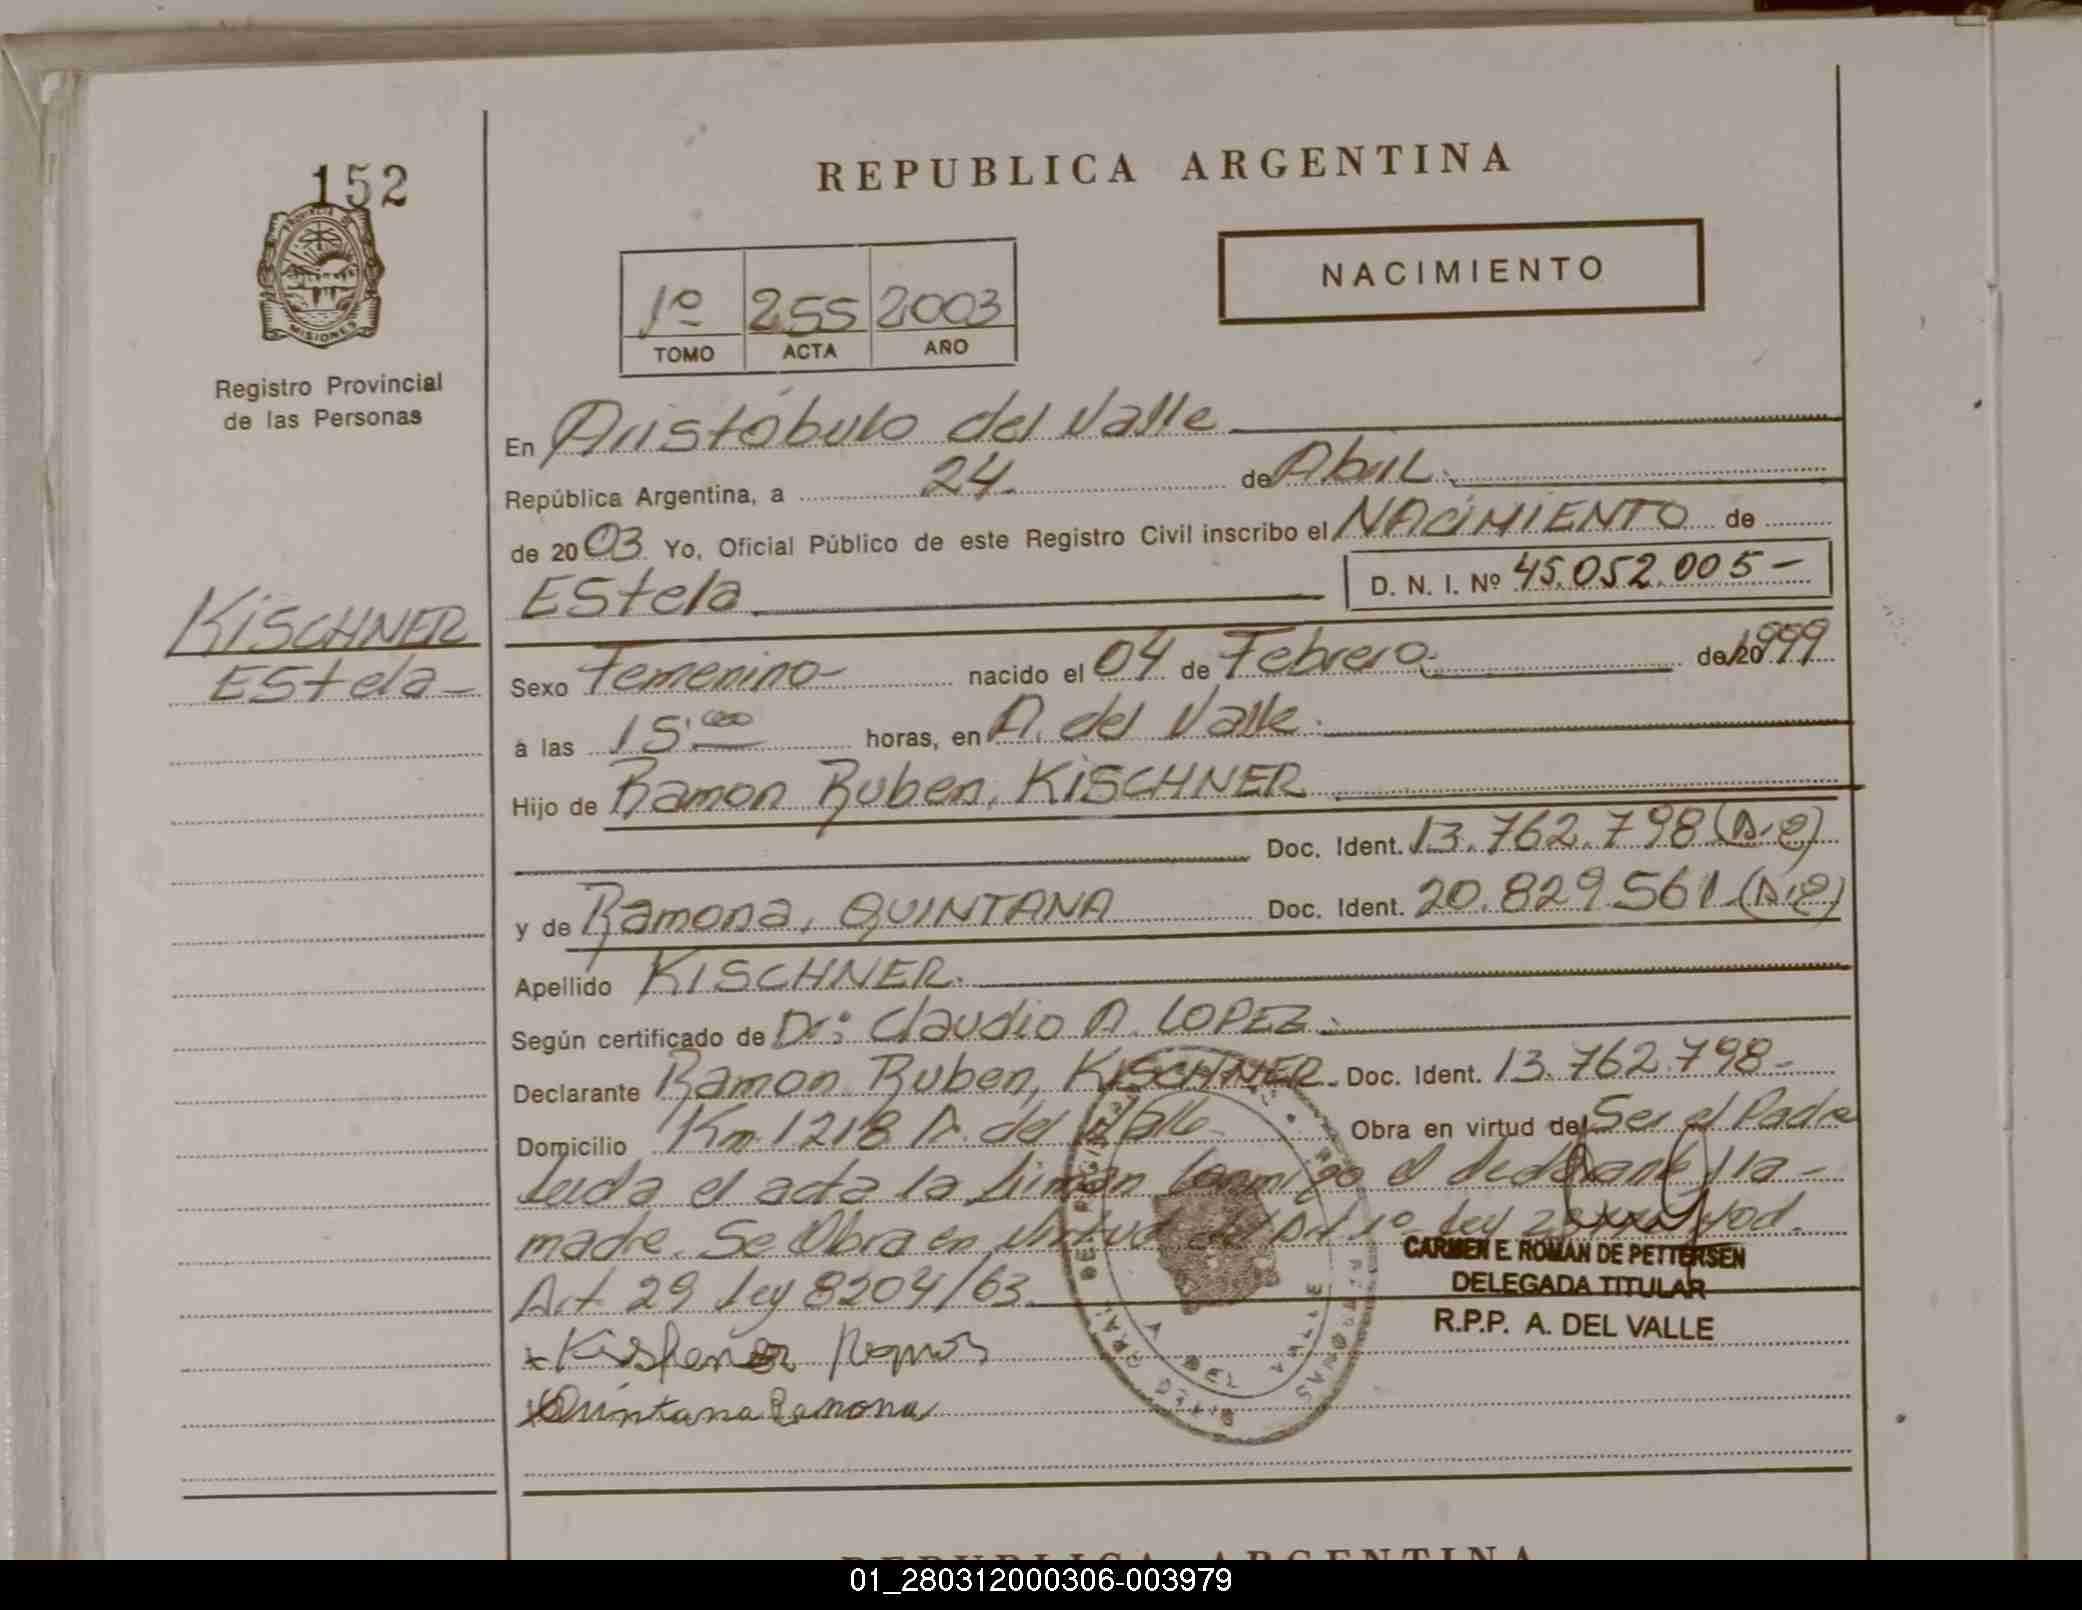 152
PROVINCIA DE
MISIONES
Registro Provincial
de las Personas
KiSCHNER
EStela -
REPUBLICA ARGENTINA
NACIMIENTO
1º 255 2003
TOMO ACTA AÑO
En Aristóbulo del Valle
República Argentina, a 24 de Abril
de 2003 Yo, Oficial Público de este Registro Civil inscribo el NACIMIENTO de
EStela D. N. I. Nº 45.052.005 -
Sexo Femenino - nacido el 04 de Febrero de 1999
á las 15:00 horas, en A. del Valle.
Hijo de Ramon Ruben, KiSCHNER
Doc. Ident. 13.762.798
y de Ramona, QUINTANA Doc. Ident. 20.829.561
Apellido KISCHNER.
Según certificado de Dr: Claudio A. LOPEZ.
Declarante Ramon Ruben, KiSCHNER. Doc. Ident. 13.762.798 -
Domicilio Km 1218 A. del Valle Obra en virtud de Ser el Padre
Leida el acta la firman conmigo el declarante y la -
madre. Se Obra en virtud del Art 1º Ley
Art 29 Ley 8204/63.
CARMEN E. ROMAN DE PETTERSEN
DELEGADA TITULAR
R.P.P. A. DEL VALLE
Quintana Ramona
REPUBLICA ARGENTINA
01_280312000306-003979